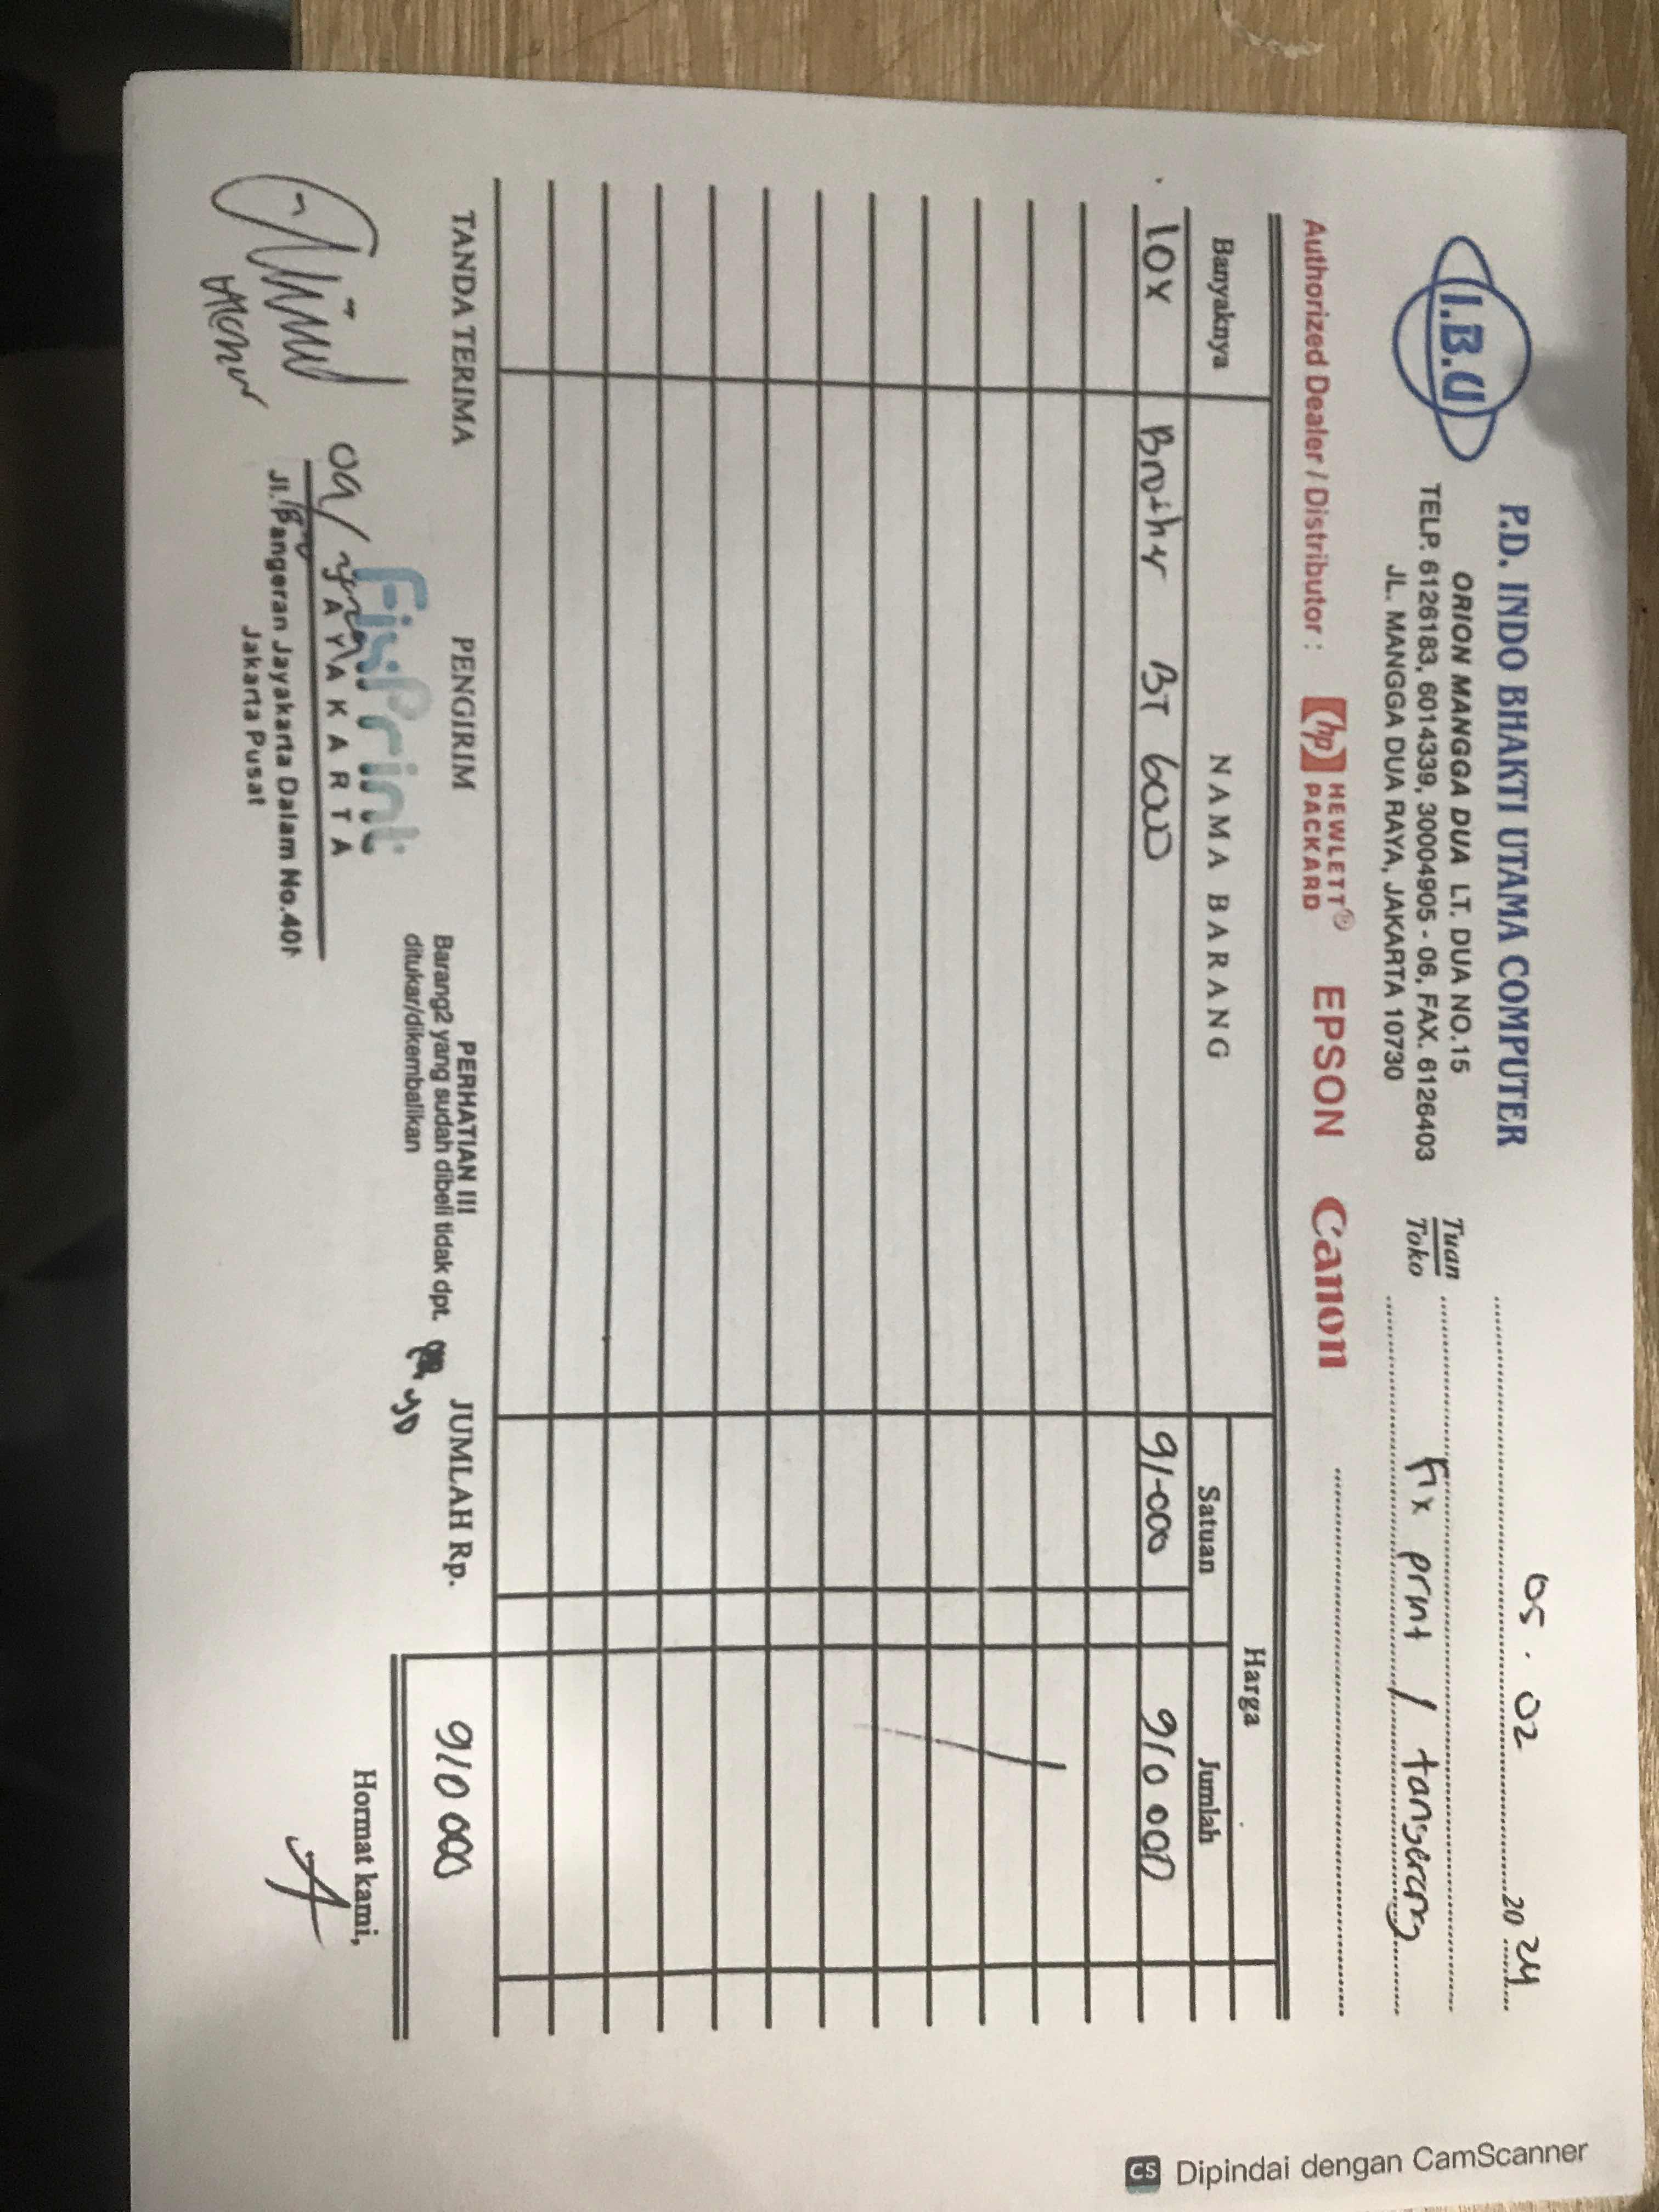 I.B.U
P.D. INDO BHAKTI UTAMA COMPUTER
ORION MANGGA DUA LT. DUA NO.15
TELP. 6126183, 6014339, 30004905 - 06, FAX. 6126403
JL. MANGGA DUA RAYA, JAKARTA 10730
05 . 02 2024
Tuan
Toko
Fix print / tangerang
Authorized Dealer / Distributor : hp HEWLETT® PACKARD EPSON Canon
Banyaknya NAMA BARANG Harga
Satuan Jumlah
10x Brother BT 6000 91-000 910 000
TANDA TERIMA PENGIRIM PERHATIAN !!! JUMLAH Rp. 910 000
Barang2 yang sudah dibeli tidak dpt.
ditukar/dikembalikan
FixPrint
JAYAKARTA
Jl. Pangeran Jayakarta Dalam No.40
Jakarta Pusat
Hormat kami,
CS Dipindai dengan CamScanner